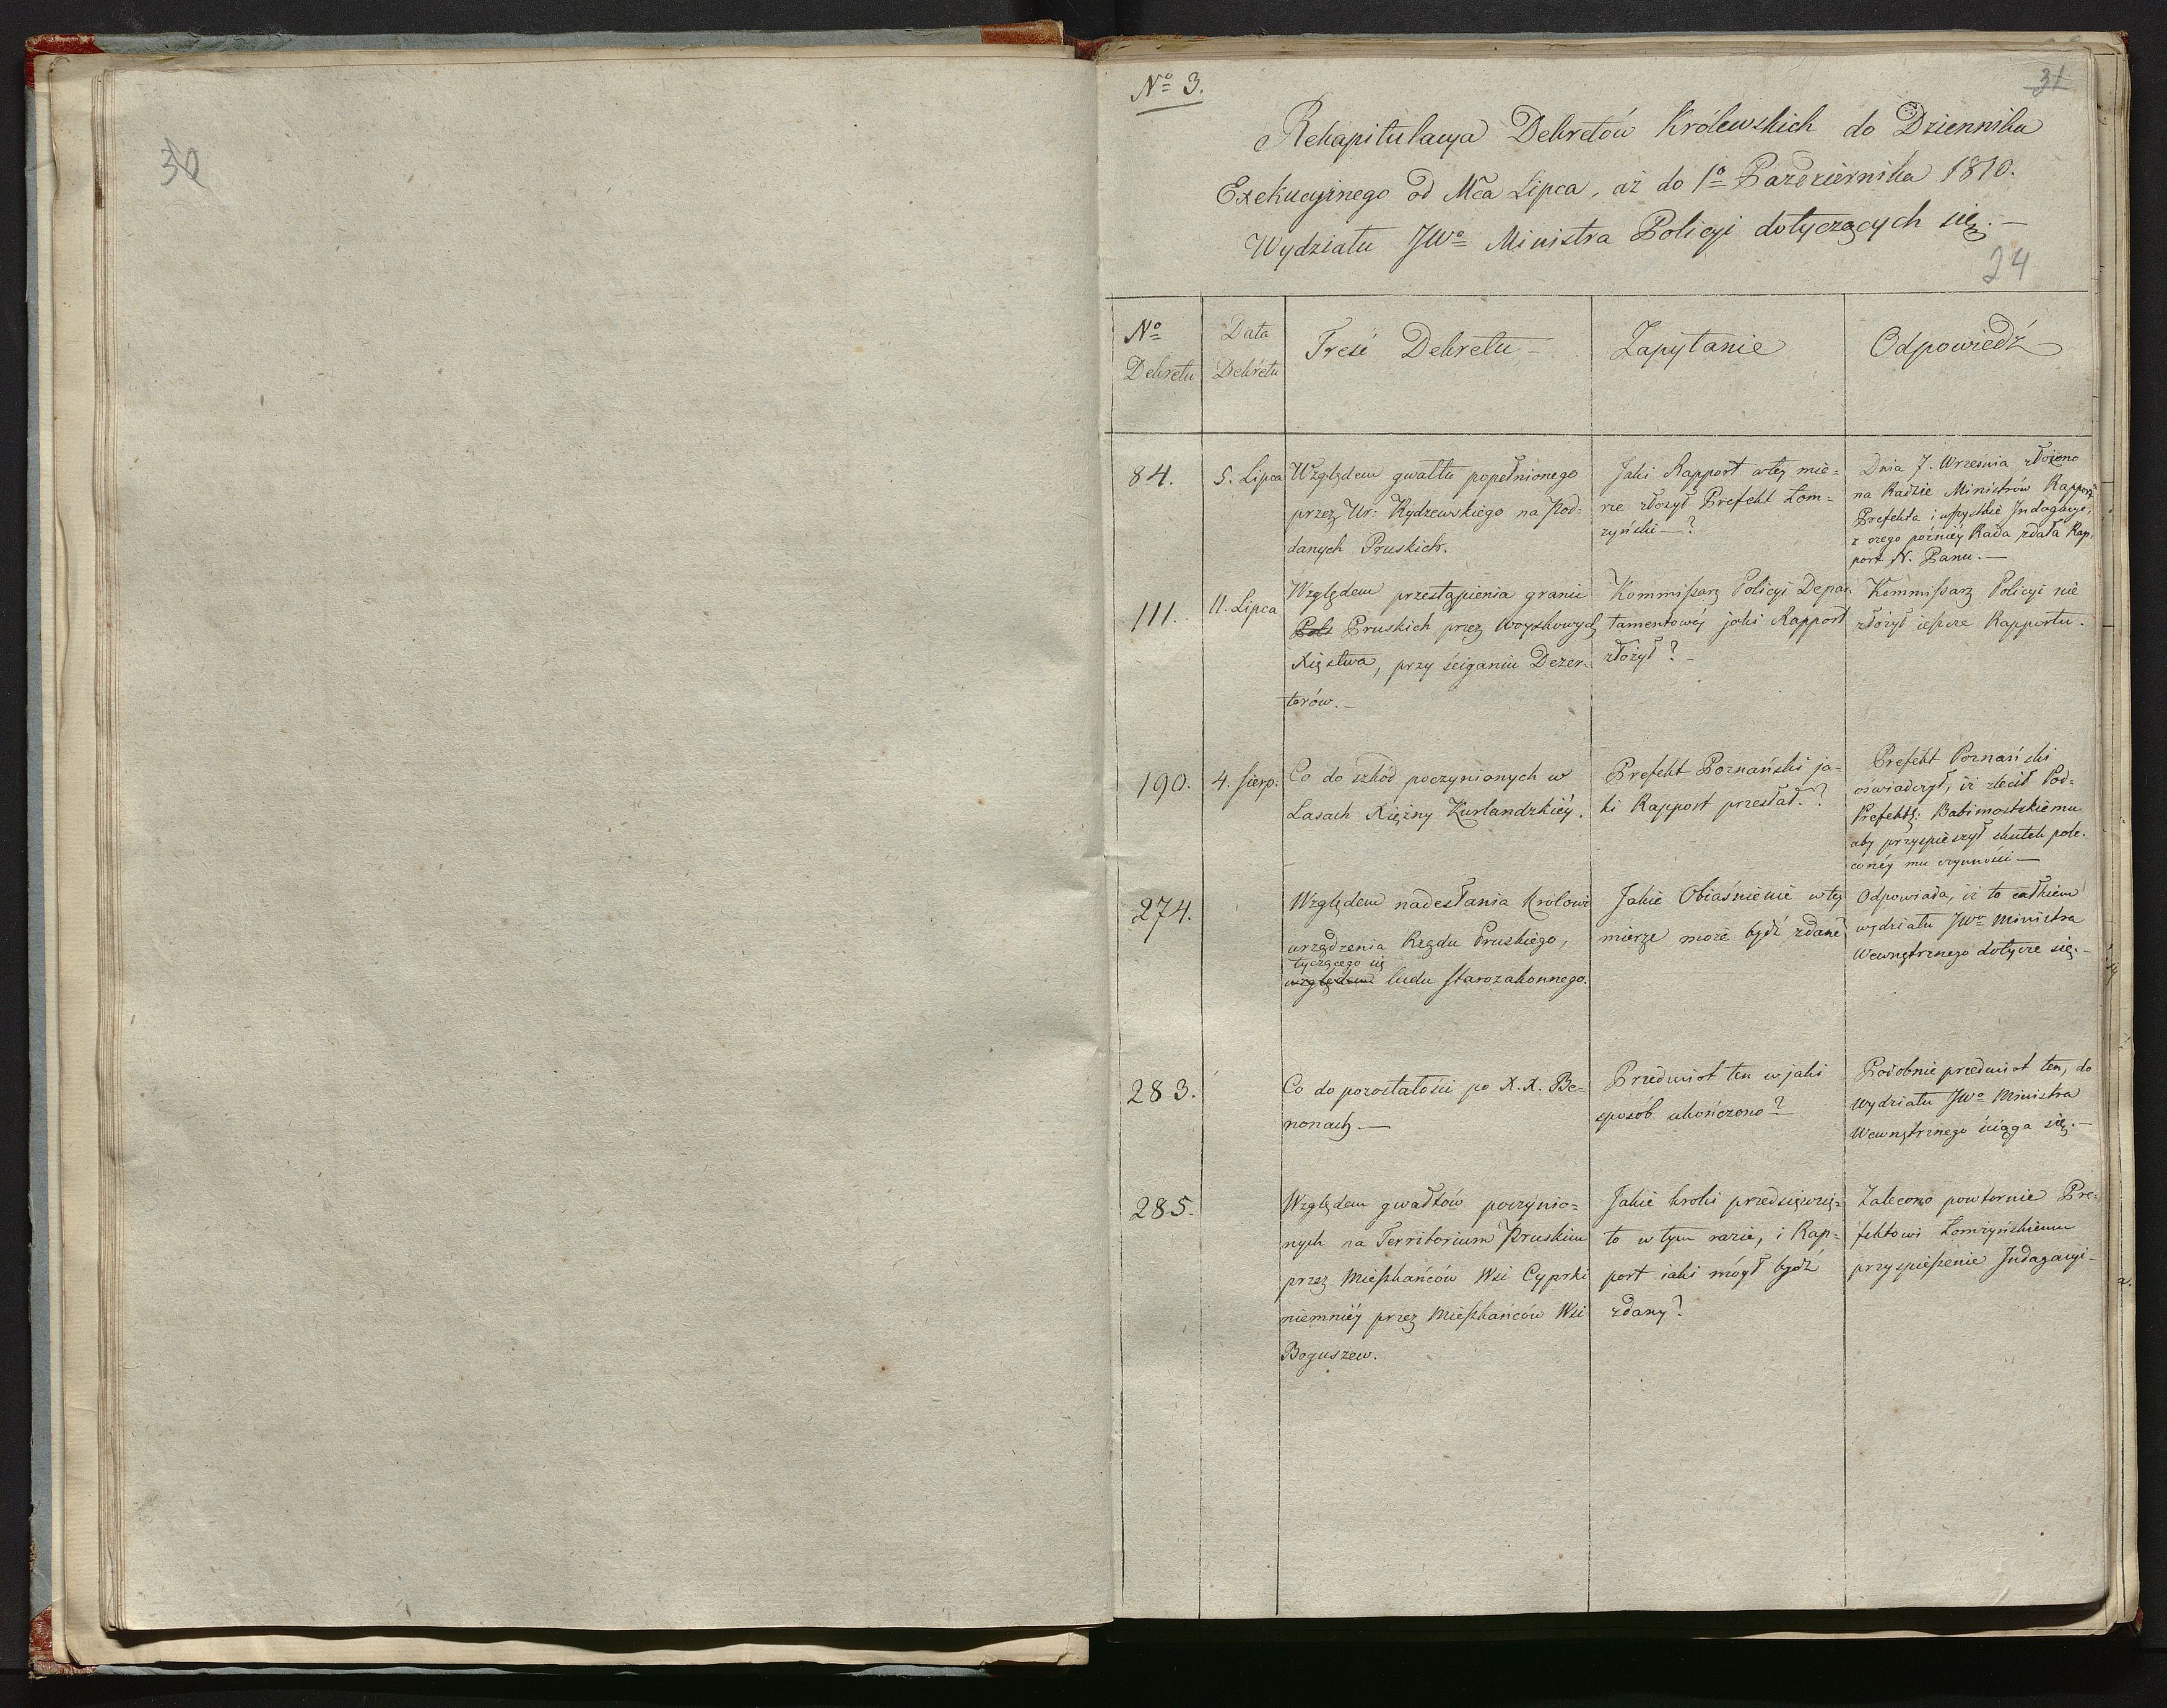 30
Nº 3.
31
Rekapitulacya Dekretów Królewskich do Dziennika
Exekucyinego od Mca Lipca, aż do 1º Października 1810.
Wydziału JWº Ministra Policyi dotyczących się.—
24
Nº
Dekretu
Data
Dekretu
Treść Dekretu —
Zapytanie
Odpowiedź
84.
5. Lipca
Względem gwałtu popełnionego
przez Ur: Rydzewskiego na Pod=
danych Pruskich.
Jaki Rapport w tey mie=
rze złożył Prefekt Łom=
zyński —?
Dnia 7. Września złożono
na Radzie Ministrów Rapport
Prefekta i wszystkie Indagacye,
z czego póżniéy Rada zdała Rap=
port N. Panu.—
111.
11. Lipca
Względem przestąpienia granic
Pols Pruskich przez Woyskowych
Xięstwa, przy ściganiu Dezer=
terów.—
Kommissarz Policyi Depar=
tamentowéy jaki Rapport
złożył? —
Kommissarz Policyi nie
złożył ieszcze Rapportu.
190.
4. Sierp:
Co do szkod poczynionych w
Lasach Xiężny Kurlandzkiéy.
Prefekt Poznański ja=
ki Rapport przesłał.?
Prefekt Poznański
oświadczył, iż zlecił Pod=
Prefekt: Babimostskiemu
aby przyspieszył skutek pole=
conéy mu czynności —
274.
Względem nadesłania Królowi
urządzenia Rządu Pruskiego,
tyczącego się
względem ludu starozakonnego.
Jakie Obiaśnienie w tey
mierze może bydź zdane
Odpowiada, iż to całkiem
wydziału JWº Ministra
Wewnętrznego dotycze się.—
283.
Co do pozostałości po X.X. Be=
nonach.—
Przedmiot ten w jaki
sposób ukończono?
Podobnie przedmiot ten, do
Wydziału JWº Ministra
Wewnętrznego ściąga się.—
285.
Względem gwałtów poczynio=
nych na Territorium Pruskim
przez Mieszkańców Wsi Cyprki
niemniéy przez Mieszkańców Wsi
Boguszew.
Jakie kroki przedsięwzię=
to w tym razie, i Rap=
port iaki mógł bydź
zdany?
Zalecono powtornie Pre=
fektowi Łomżyńskiemu
przyspieszenie Indagacyi —